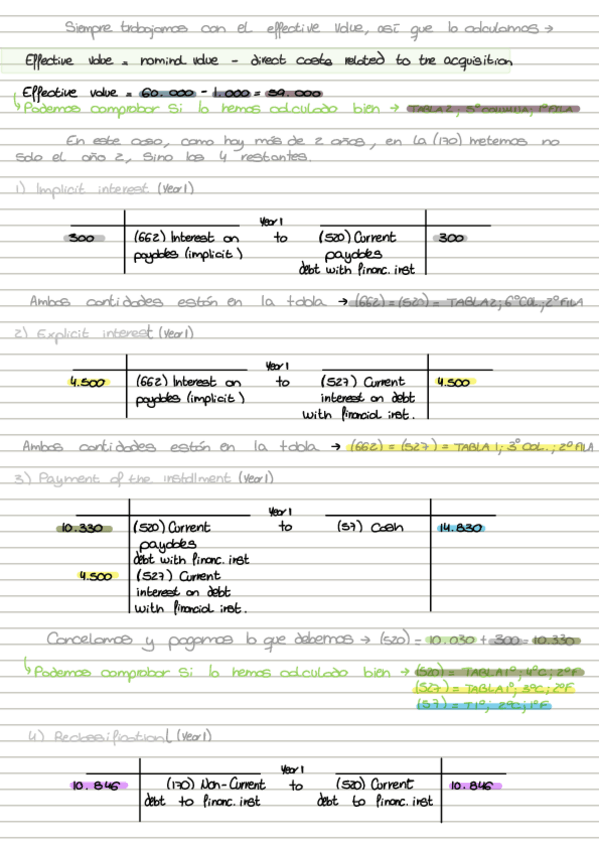 Siempre trabajamos con el effective value, así que lo calculamos →
Effective value = nominal value - direct costs related to the acquisition
Effective value = 60.000 - 1.000 = 59.000
Podemos comprobar si lo hemos calculado bien → TABLA 2; 5º COLUMNA; 1º FILA
En este caso, como hay más de 2 años, en la (170) metemos no
solo el año 2, sino los 4 restantes.
1) Implicit interest (Year 1)
Year 1
300 (662) Interest on to (520) Current 300
payables (implicit) payables
debt with financ. inst
Ambas cantidades están en la tabla → (662) = (520) = TABLA 2; 6º COL; 2º FILA
2) Explicit interest (Year 1)
Year 1
4.500 (662) Interest on to (527) Current 4.500
payables (implicit) interest on debt
with financial inst.
Ambas cantidades están en la tabla → (662) = (527) = TABLA 1; 3º COL.; 2º FILA
3) Payment of the installment (Year 1)
Year 1
10.330 (520) Current to (57) Cash 14.830
payables
debt with financ. inst
4.500 (527) Current
interest on debt
with financial inst.
Cancelamos y pagamos lo que debemos → (520) = 10.030 + 300 = 10.330
Podemos comprobar si lo hemos calculado bien → (520) = TABLA 1º; 4ºC; 2ºF
(527) = TABLA 1º; 3ºC; 2ºF
(57) = T1º; 2ºC; 1ºF
4) Reclassification (Year 1)
Year 1
10.846 (170) Non-Current to (520) Current 10.846
debt to financ. inst debt to financ. inst